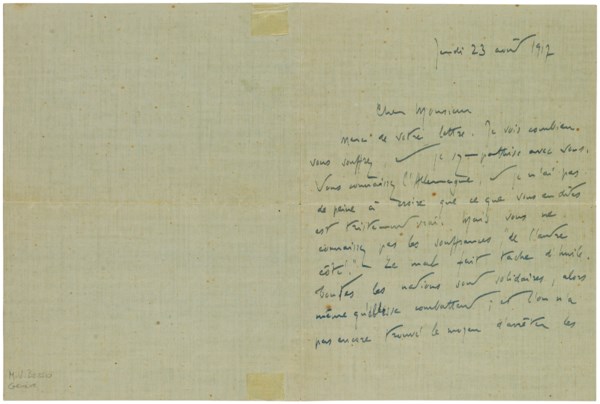 Jeudi 23 août 1917
Cher Monsieur
Merci de votre lettre. Je vois combien
vous souffrez, et je sympathise avec vous.
Vous connaissez l'Allemagne, et je n'ai pas
de peine à croire que ce que vous en dites
est tristement vrai. Mais vous ne
connaissez pas les souffrances "de l'autre
côté". — Le mal fait tache d'huile.
Toutes les nations sont solidaires, alors
même qu'elles se combattent; et l'on n'a
pas encore trouvé le moyen d'arrêter les